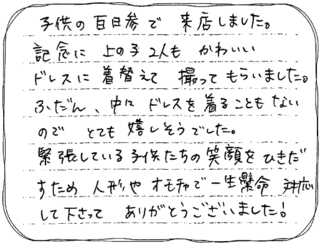 子供の百日参で 来店しました。
記念に 上の子2人も かわいい
ドレスに 着替えて 撮ってもらいました。
ふだん、中々 ドレスを着ることもない
ので とても 嬉しそうでした。
緊張している子供たちの笑顔をひきだ
すため 人形や オモチャで一生懸命 対応
して下さって ありがとうございました!